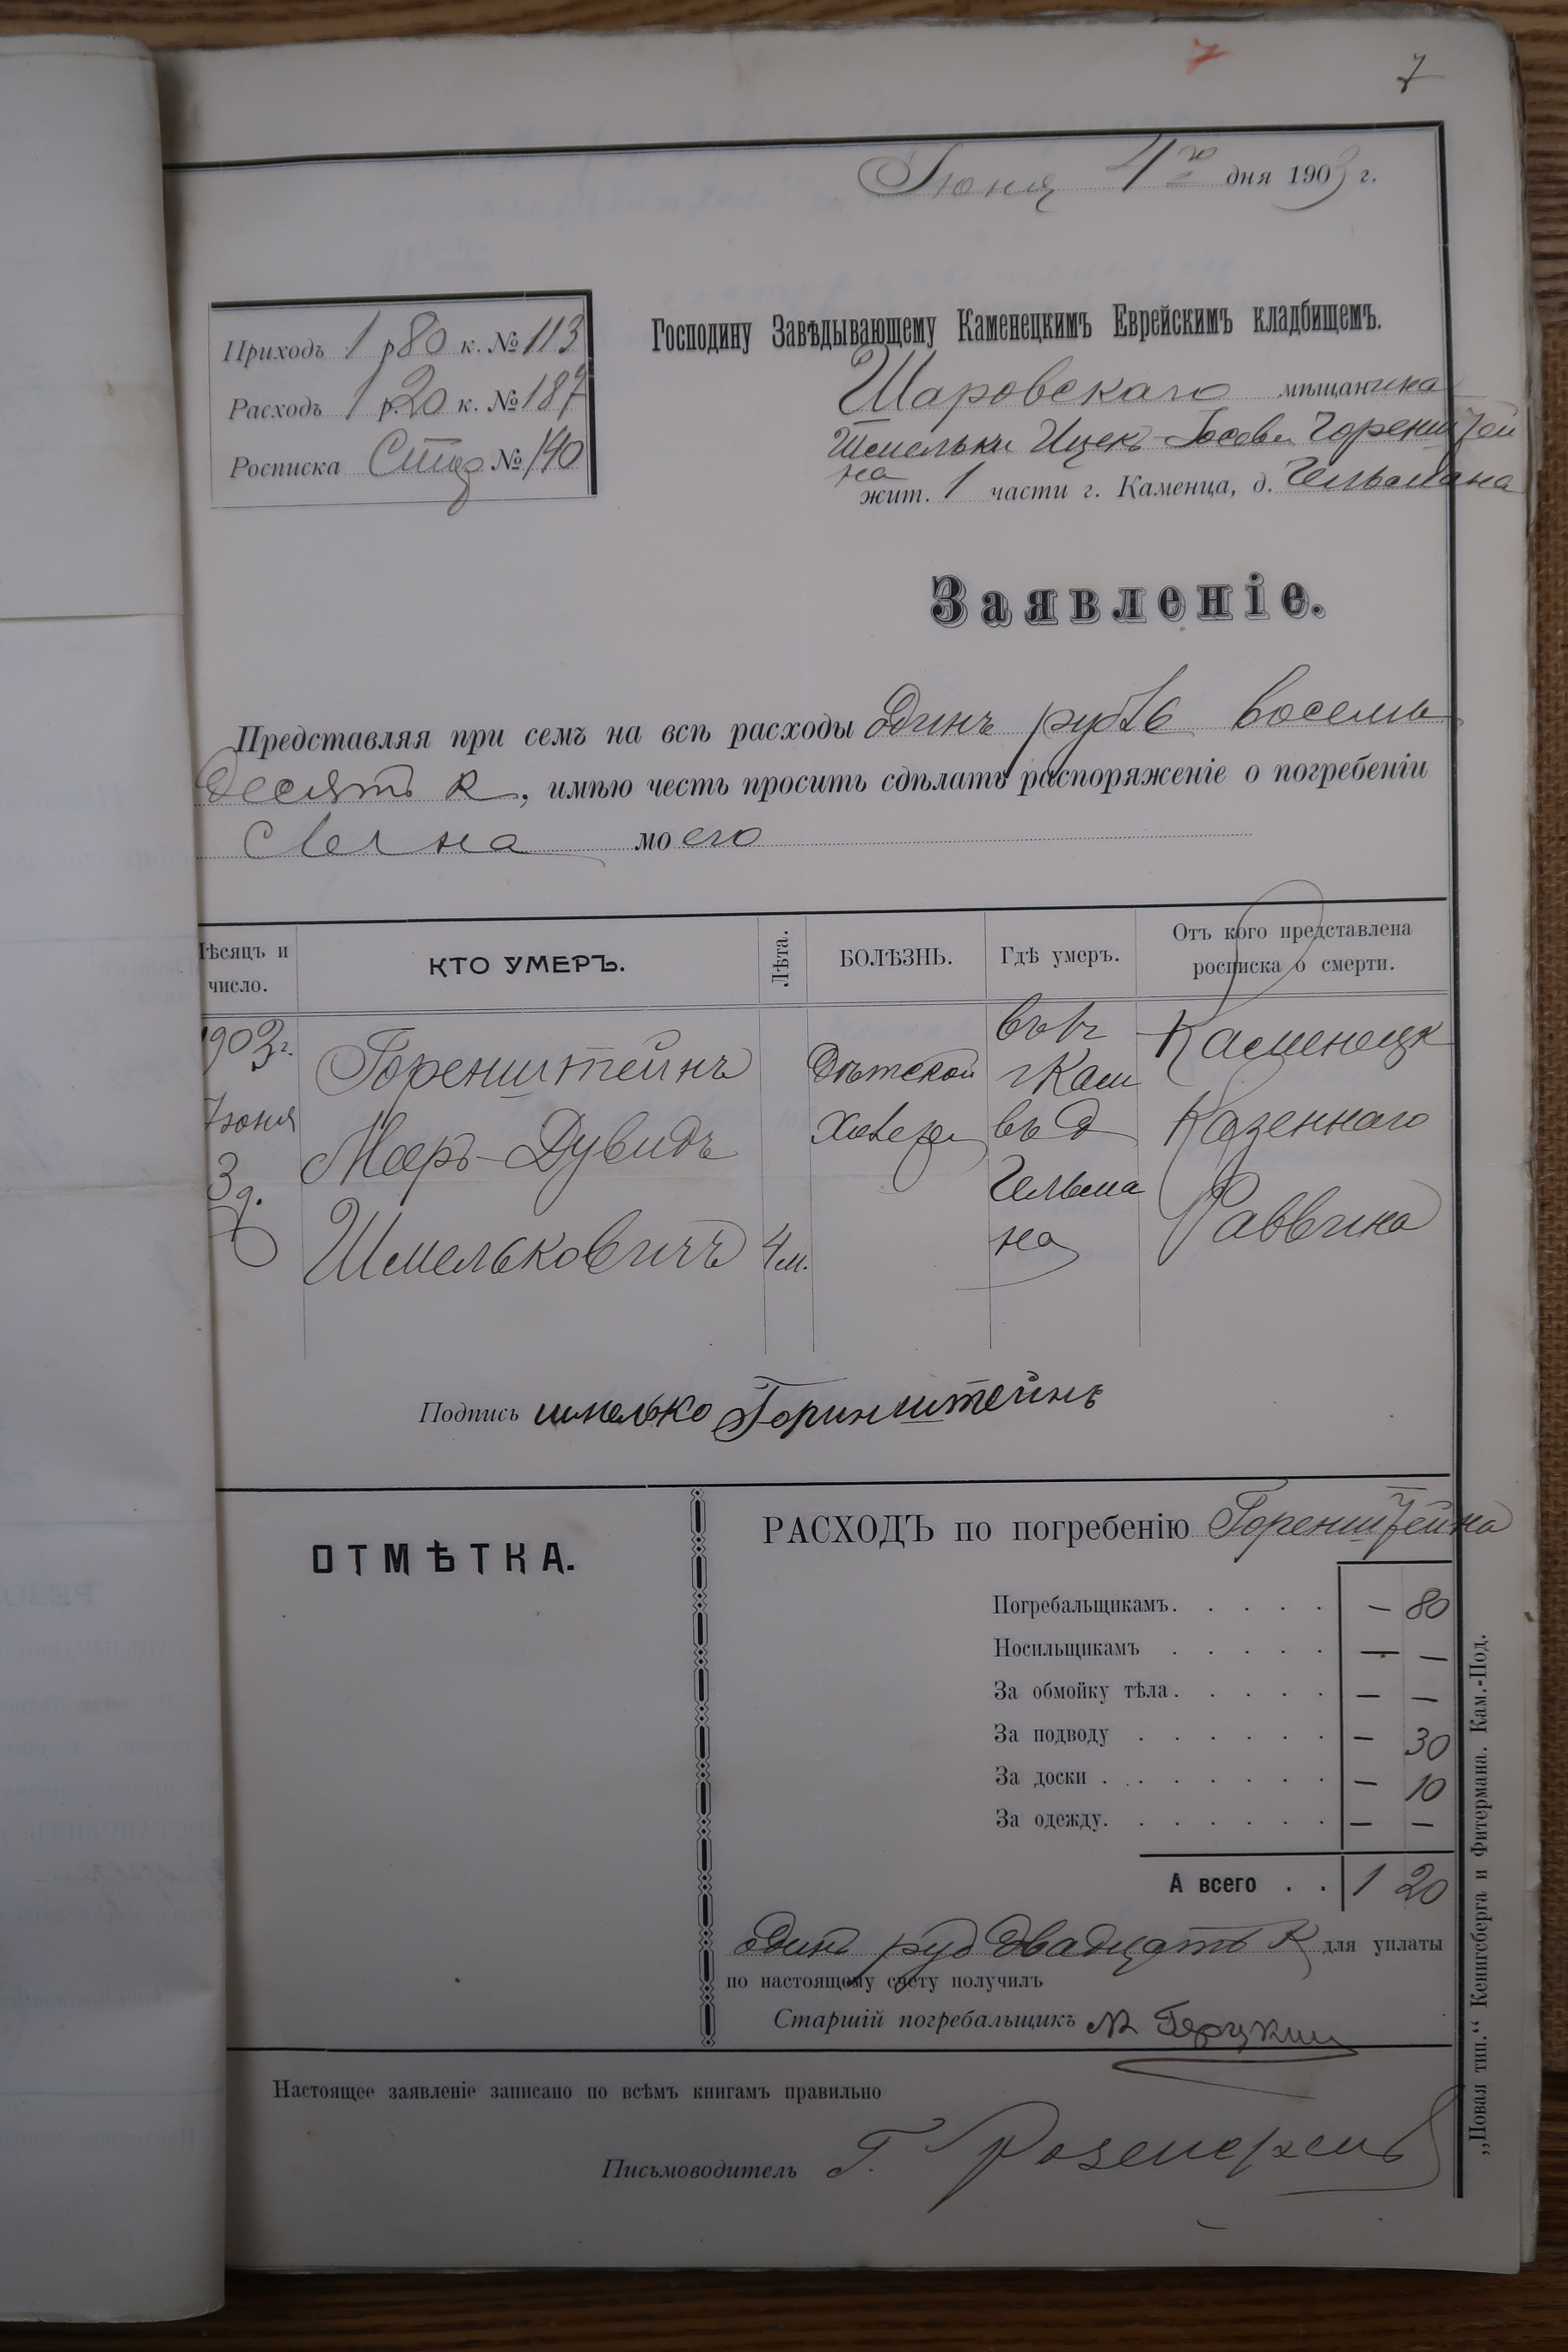 7 7
Іюня 4го дня 1903 г.
Приходъ 1 р 80 к. № 113
Расходъ 1 р. 20 к. № 187
Росписка № 140
Господину Завѣдывающему Каменецкимъ Еврейскимъ кладбищемъ.
Шаровскаго мѣщанина
Шмельки Ицек-Іосева Горенштей
на
жит. 1 части г. Каменца, д. Гельмана
Заявленіе.
Представляя при семъ на всѣ расходы одинъ рубль восемь
десятъ к, имѣю честь просить сдѣлать распоряженіе о погребеніи
сына моего
Мѣсяцъ и
число.
КТО УМЕРЪ.
Лѣта.
БОЛѢЗНЬ.
Гдѣ умеръ.
Отъ кого представлена
росписка о смерти.
1903 г.
Іюня
3 д.
Горенштейнъ
Мееръ-Дувидъ
Шмельковичъ
4 м.
Дѣтской
г Кам
въ д
Гельма
на
Каменецк
Казеннаго
Раввина
Подпись шмелько Горинштейнъ
ОТМѢТКА.
РАСХОДЪ по погребенію Горенштейна
Погребальщикамъ. . . . . — 80
Носильщикамъ . . . . . — —
За обмойку тѣла. . . . . — —
За подводу . . . . . . — 30
За доски . . . . . . . — 10
За одежду. . . . . . . — —
А всего . . 1 20
один руб двадцать К для уплаты
по настоящему счету получилъ
Старшій погребальщикъ
Настоящее заявленіе записано по всѣмъ книгамъ правильно
Письмоводитель Г.
„Новая тип.“ Кенигсберга и Фитермана. Кам.-Под.